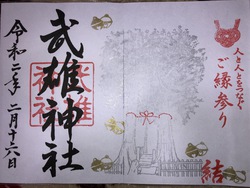 人と人とをつなぐ
ご縁参り
結
武雄神社
令和二年二月十六日